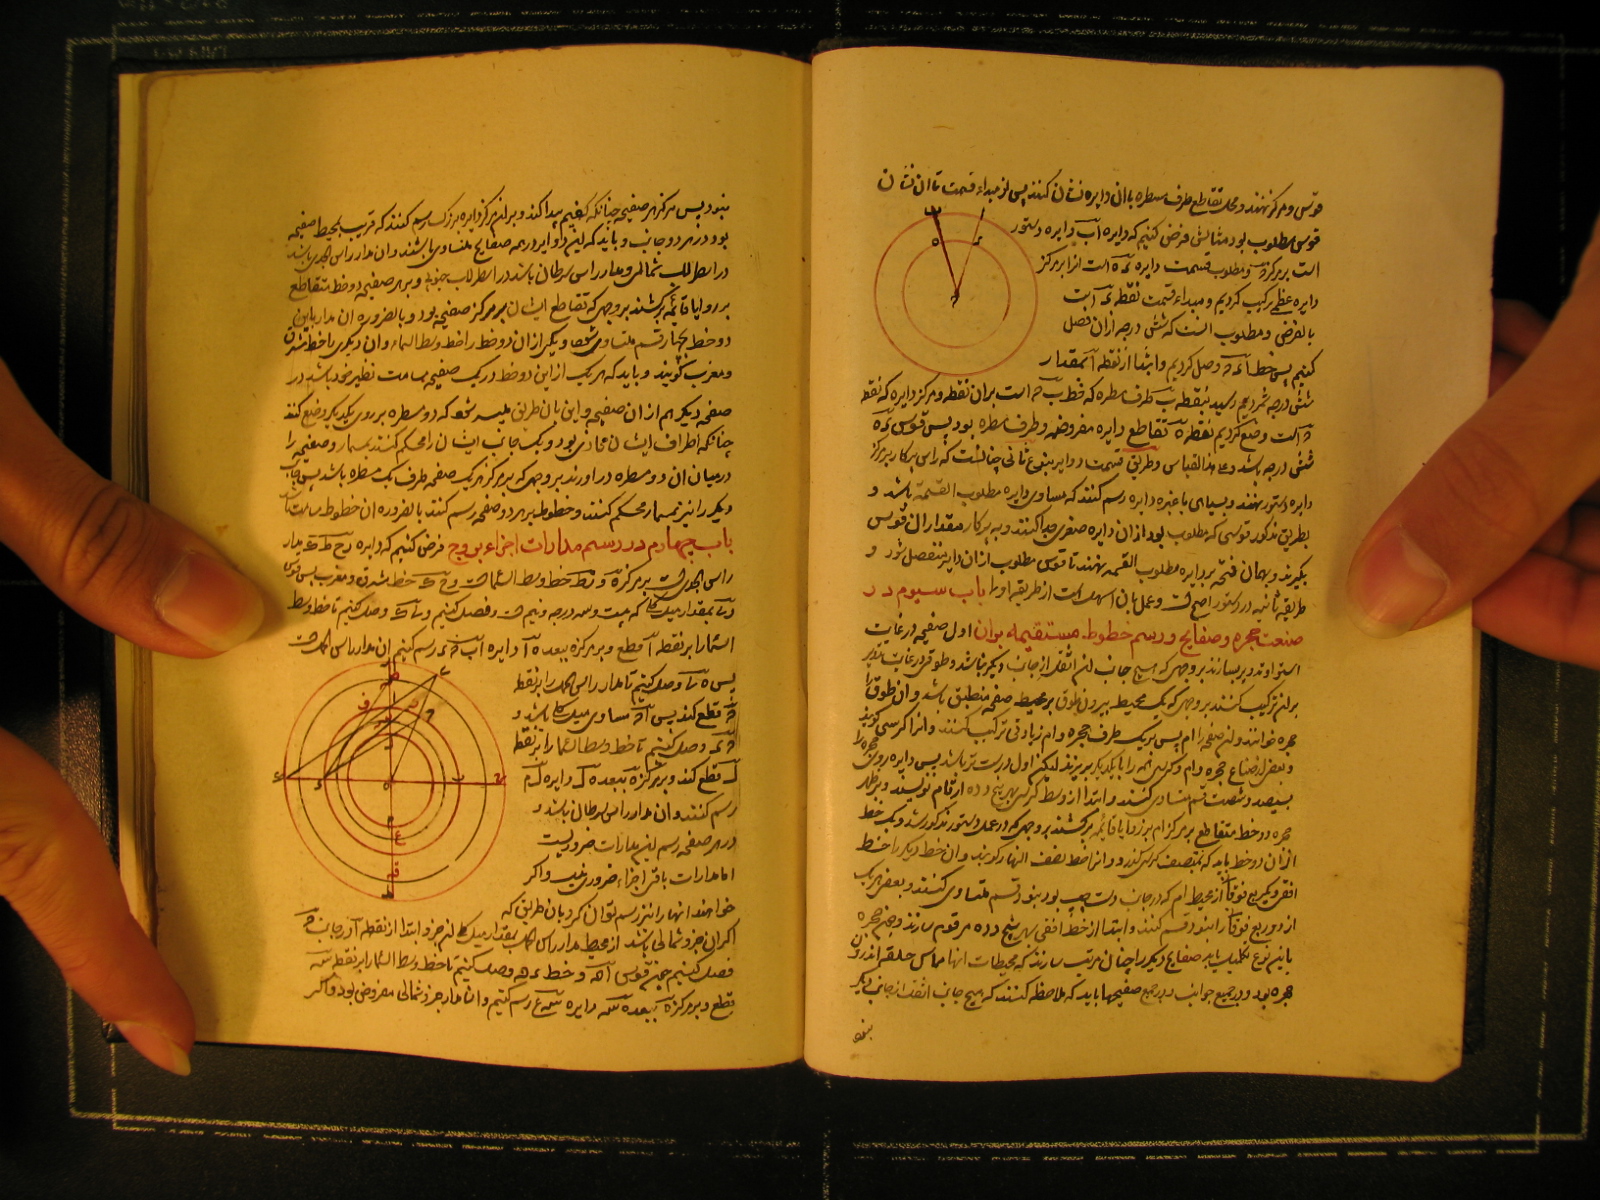 قوسی و مرکز نهند و محل تقاطع طرف مسطره باان دایره نشان کنند پس از مبداء قسمت تا ان نشان
قوس مطلوب بود مثالش فرض کنیم که دایره آب دایره دستور
است بر مرکز و مطلوب قسمت دایره است انرا بر مرکز
دایره عظمی ترکیب کردیم و مبداء قسمت نقطه است
بالفرض و مطلوب است که شش درجه ازان فصل
کنیم پس خط وصل کردیم و ابتدا از نقطه آ بمقدار
شش درجه شمردیم رسید بنقطه ب طرف مسطره که خط است بران نقطه و مرکز دایره که نقطه
است وضع کردیم نقطه ه تقاطع دایره مفروضه و طرف مسطره بود پس قوس
شش درجه باشد و علی هذا القیاس و طریق قسمت دوایر بنوع ثانی چنانست که راس پرکار بر مرکز
دایره دستور نهند و بسیاهی یا غیره دایره رسم کنند که مساوی دایره مطلوب القسمة باشد و
بطریق مذکور قوسی که مطلوب بود ازان دایره صغری جدا کنند و به پرکار مقدار ان قوس
بگیرند و بهمان فتحه بر دایره مطلوب القسمه نهند تا قوس مطلوب ازان دایره منفصل شود و
طریقه ثانیه در دستور اصح است و عمل بان اسهل است از طریقه اولی باب سیوم در
صنعت حجره و صفایح و رسم خطوط مستقیمه بران اول صفیحه در غایت
استوا و تدویر بسازند بروجهی که هیچ جانب از اثقل از جانب دیگر نباشد و طوقی در غایت تدویر
بر ان ترکیب کنند بروجهی که یک محیط بیرون طوق بر محیط صفحه منطبق باشد و ان طوق را
حجره خوانند و ان صفحه را ام پس بر یک طرف حجره و ام زیادتی ترکیب کنند و انرا کرسی گویند
و بعضی از صناع حجره و ام و کرسی همه را با یکدیگر بریزند لیکن اول درست تر باشد پس دایره روی حجره را
بسیصد و شصت قسم متساوی کنند و ابتدا از وسط کرسی بهر پنج و ده ارقام نویسند و بر ظهر
حجره دو خط متقاطع بر مرکز ام بر زوایا قایمه برکشند بروجهی که در عمل دستور مذکور شد و یک خط
ازان دو خط باید که بمنتصف کرسی گذرد و انرا خط نصف النهار گویند و ان خط دیگر را خط
افقی و یک ربع فوقانی از محیط ام که در جانب دست چپ بود بنود قسم متساوی کنند و بعضی هر یک
از دو ربع فوقانی را بنود قسم کنند و ابتدا از خط افقی بهر پنج و ده مرقوم سازند و چون حجره
باین نوع تکمیل یابد صفایح دیگر را چنان مرتب سازند که محیطات انها مماس حلقه اندرون
حجره بود و در جمیع جوانب و در جمیع صفیحها باید که ملاحظه کنند که هیچ جانب اثقل از جانب دیگر
بنود پس مرکز هر صفیحه چنانکه گفتیم پیدا کند و بر ان مرکز دایره بزرگ رسم کنند که قریب بمحیط صفیحه
بود در هر دو جانب و باید که این دوایر در همه صفایح متساوی باشند و ان مدار راس الجدی باشد
در اسطرلاب شمالی و مدار راس سرطان باشد در اسطرلاب جنوبی و بر هر صفیحه دو خط متقاطع
بر زوایا قائمه برکشند بروجهی که تقاطع ایشان بر مرکز صفیحه بود و بالضروره ان مدار باین
دو خط بچهار قسم متساوی شود و یکی ازان دو خط را خط وسط السماء و ان دیگری را خط مشرق
و مغرب گویند و باید که هر یک از این دو خط در یک صفیحه مسامت نظیر خود باشد در
صفحه دیگر هم از ان صفیحه و این بان طریق میسر شود که دو مسطره بر روی یکدیگر وضع کنند
چنانکه اطراف ایشان محاذی بود و یک جانب ایشان را محکم کنند بمسمار و صفیحه را
در میان ان دو مسطره در اورند بروجهی که بر مرکز یک صفحه طرف یک مسطره باشد پس جانب
دیگر را نیز بمسمار محکم کنند و خطوط بر هر دو صفحه رسم کنند بالضروره ان خطوط
باب چهارم در رسم مدارات اجزاء بروج فرض کنیم که دایره مدار
راس الجدی است بر مرکز ه و خط وسط السماست و خط مشرق و مغرب پس قوس
بمقدار میل کلی که بیست و سه درجه و نیم است فصل کنیم و وصل کنیم تا خط وسط
السما را بر نقطه آ قطع و بر مرکز ه ببعد ه آ دایره رسم کنیم ان مدار راس الحمل است
پس وصل کنیم تا مدار راس الحمل را بر نقطه
قطع کند پس مساوی میل کلی باشد و
وصل کنیم تا خط وسط السما را بر نقطه
قطع کند و بر مرکز ه ببعد ه دایره
رسم کنند و ان مدار راس سرطان باشد و
در هر صفحه رسم این مدارات ضروریست
اما مدارات باقی اجزاء ضروری نیست و اگر
خواهند انها را نیز رسم توان کرد بان طریق که
اگر ان جزو شمالی باشد از محیط مدار راس الحمل بمقدار میل ان جزو ابتدا از نقطه آ در جانب
فصل کنیم چون قوس و خط وصل کنیم تا خط وسط السما را بر نقطه
قطع و بر مرکز ه ببعد ه دایره رسم کنیم و ان مدار جزو شمالی مفروض بود و اگر